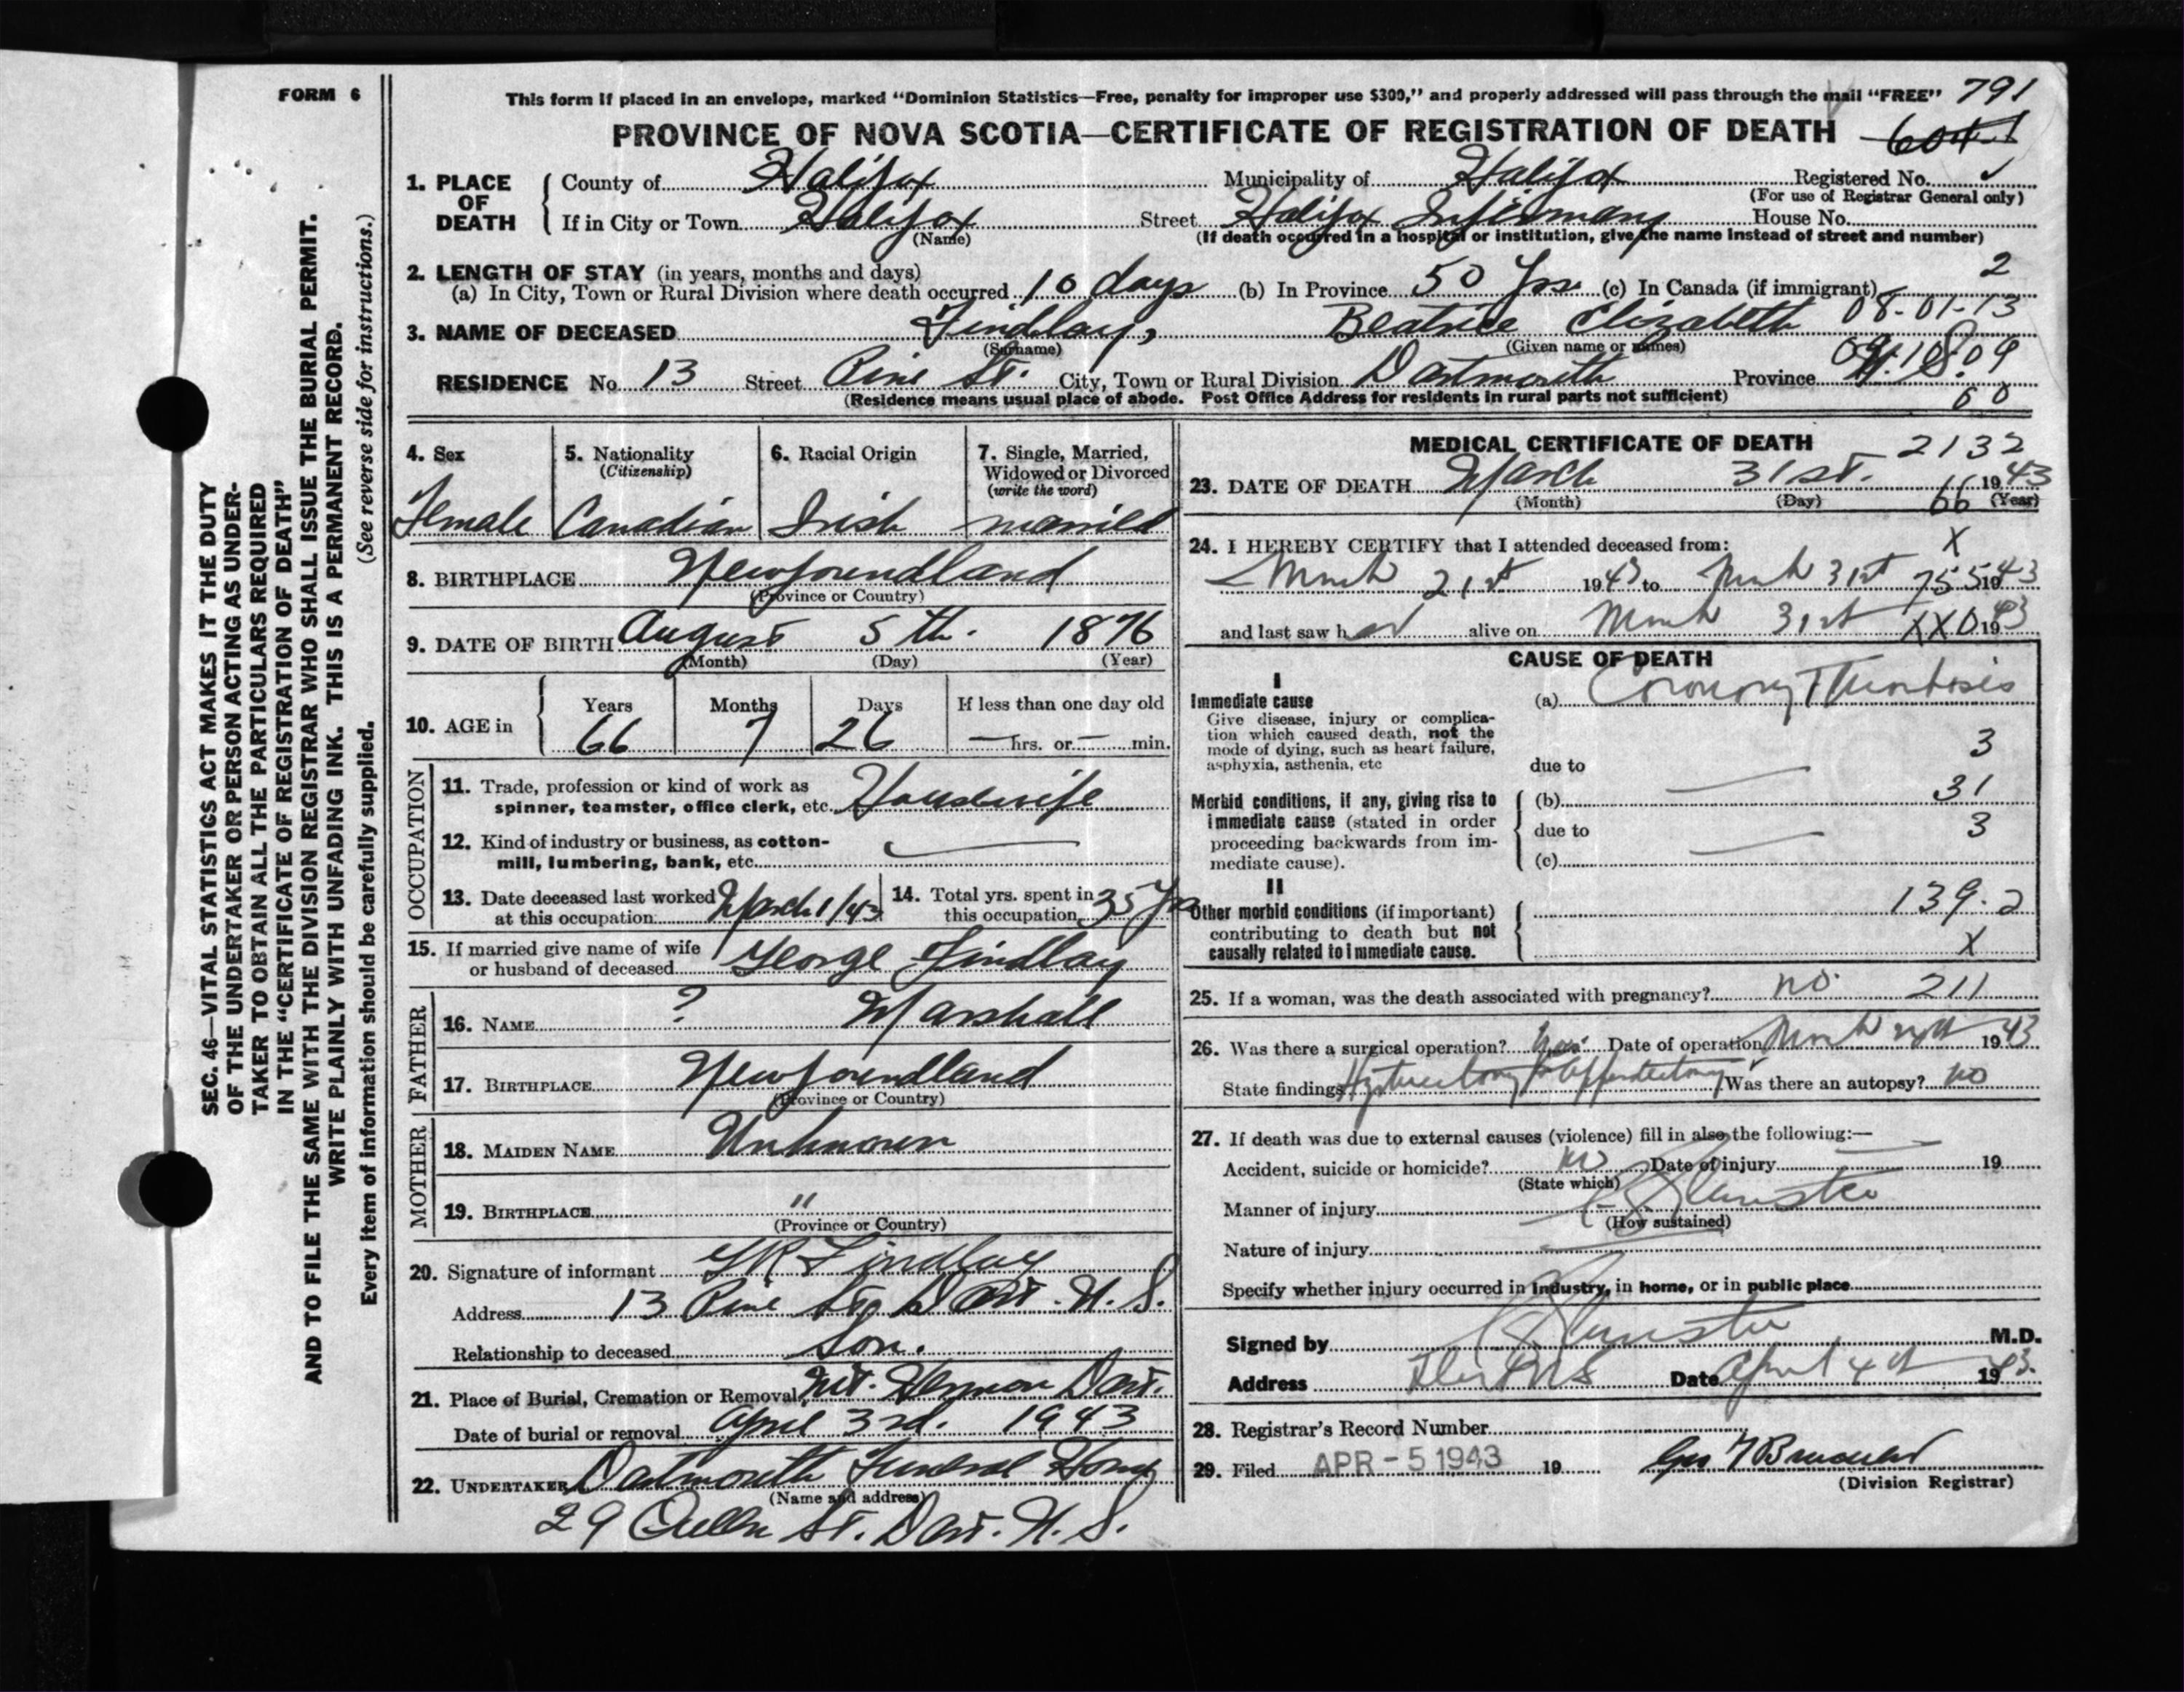 FORM 6
This form if placed in an envelope, marked "Dominion Statistics—Free, penalty for improper use $300," and properly addressed will pass through the mail "FREE" 791
PROVINCE OF NOVA SCOTIA—CERTIFICATE OF REGISTRATION OF DEATH
1. PLACE OF DEATH
County of Halifax Municipality of Halifax Registered No.
(For use of Registrar General only)
If in City or Town Halifax Street Halifax Infirmary House No.
(Name) (If death occurred in a hospital or institution, give the name instead of street and number)
2. LENGTH OF STAY (in years, months and days) 2
(a) In City, Town or Rural Division where death occurred 10 days (b) In Province 50 Yrs. (c) In Canada (if immigrant)
3. NAME OF DECEASED Findlay, Beatrice Elizabeth 08-01-13
(Surname) (Given name or names)
RESIDENCE No. 13 Street Pine St. City, Town or Rural Division Dartmouth Province N.S.
(Residence means usual place of abode. Post Office Address for residents in rural parts not sufficient)
4. Sex
Female
5. Nationality
(Citizenship)
Canadian
6. Racial Origin
Irish
7. Single, Married,
Widowed or Divorced
(write the word)
married
8. BIRTHPLACE Newfoundland
(Province or Country)
9. DATE OF BIRTH August 5th. 1876
(Month) (Day) (Year)
10. AGE in
Years Months Days If less than one day old
66 7 26 — hrs. or — min.
OCCUPATION
11. Trade, profession or kind of work as
spinner, teamster, office clerk, etc. Housewife
12. Kind of industry or business, as cotton-
mill, lumbering, bank, etc.
13. Date deceased last worked
at this occupation March 1/43
14. Total yrs. spent in
this occupation 35 Yrs
15. If married give name of wife
or husband of deceased George Findlay
FATHER
16. NAME ? Marshall
17. BIRTHPLACE Newfoundland
(Province or Country)
MOTHER
18. MAIDEN NAME Unknown
19. BIRTHPLACE "
(Province or Country)
20. Signature of informant Findlay
Address 13 Pine St., Dart. N.S.
Relationship to deceased Son.
21. Place of Burial, Cremation or Removal Mt. Hermon Dart.
Date of burial or removal April 3rd. 1943
22. UNDERTAKER Dartmouth Funeral Home
(Name and address)
29 Queen St. Dart. N.S.
MEDICAL CERTIFICATE OF DEATH 2132
23. DATE OF DEATH March 31st. 1943
(Month) (Day) 66 (Year)
24. I HEREBY CERTIFY that I attended deceased from: X
March 21st 1943 to March 31st 755 1943
and last saw her alive on March 31st XX0 1943
CAUSE OF DEATH
I
Immediate cause
Give disease, injury or complica-
tion which caused death, not the
mode of dying, such as heart failure,
asphyxia, asthenia, etc
(a) Coronary Thrombosis
3
due to —
Morbid conditions, if any, giving rise to
immediate cause (stated in order
proceeding backwards from im-
mediate cause).
(b) 31
due to — 3
(c)
II
Other morbid conditions (if important)
contributing to death but not
causally related to immediate cause.
139.2
X
25. If a woman, was the death associated with pregnancy? no. 211
26. Was there a surgical operation? Yes. Date of operation March 1943
State findings Hysterectomy & Appendectomy Was there an autopsy? no
27. If death was due to external causes (violence) fill in also the following:—
Accident, suicide or homicide? no Date of injury 19
(State which)
Manner of injury
(How sustained)
Nature of injury
Specify whether injury occurred in industry, in home, or in public place
Signed by M.D.
Address Date April 4th 1943.
28. Registrar's Record Number
29. Filed APR - 5 1943 19
(Division Registrar)
SEC. 46—VITAL STATISTICS ACT MAKES IT THE DUTY
OF THE UNDERTAKER OR PERSON ACTING AS UNDER-
TAKER TO OBTAIN ALL THE PARTICULARS REQUIRED
IN THE "CERTIFICATE OF REGISTRATION OF DEATH"
AND TO FILE THE SAME WITH THE DIVISION REGISTRAR WHO SHALL ISSUE THE BURIAL PERMIT.
WRITE PLAINLY WITH UNFADING INK. THIS IS A PERMANENT RECORD.
(See reverse side for instructions.)
Every item of information should be carefully supplied.